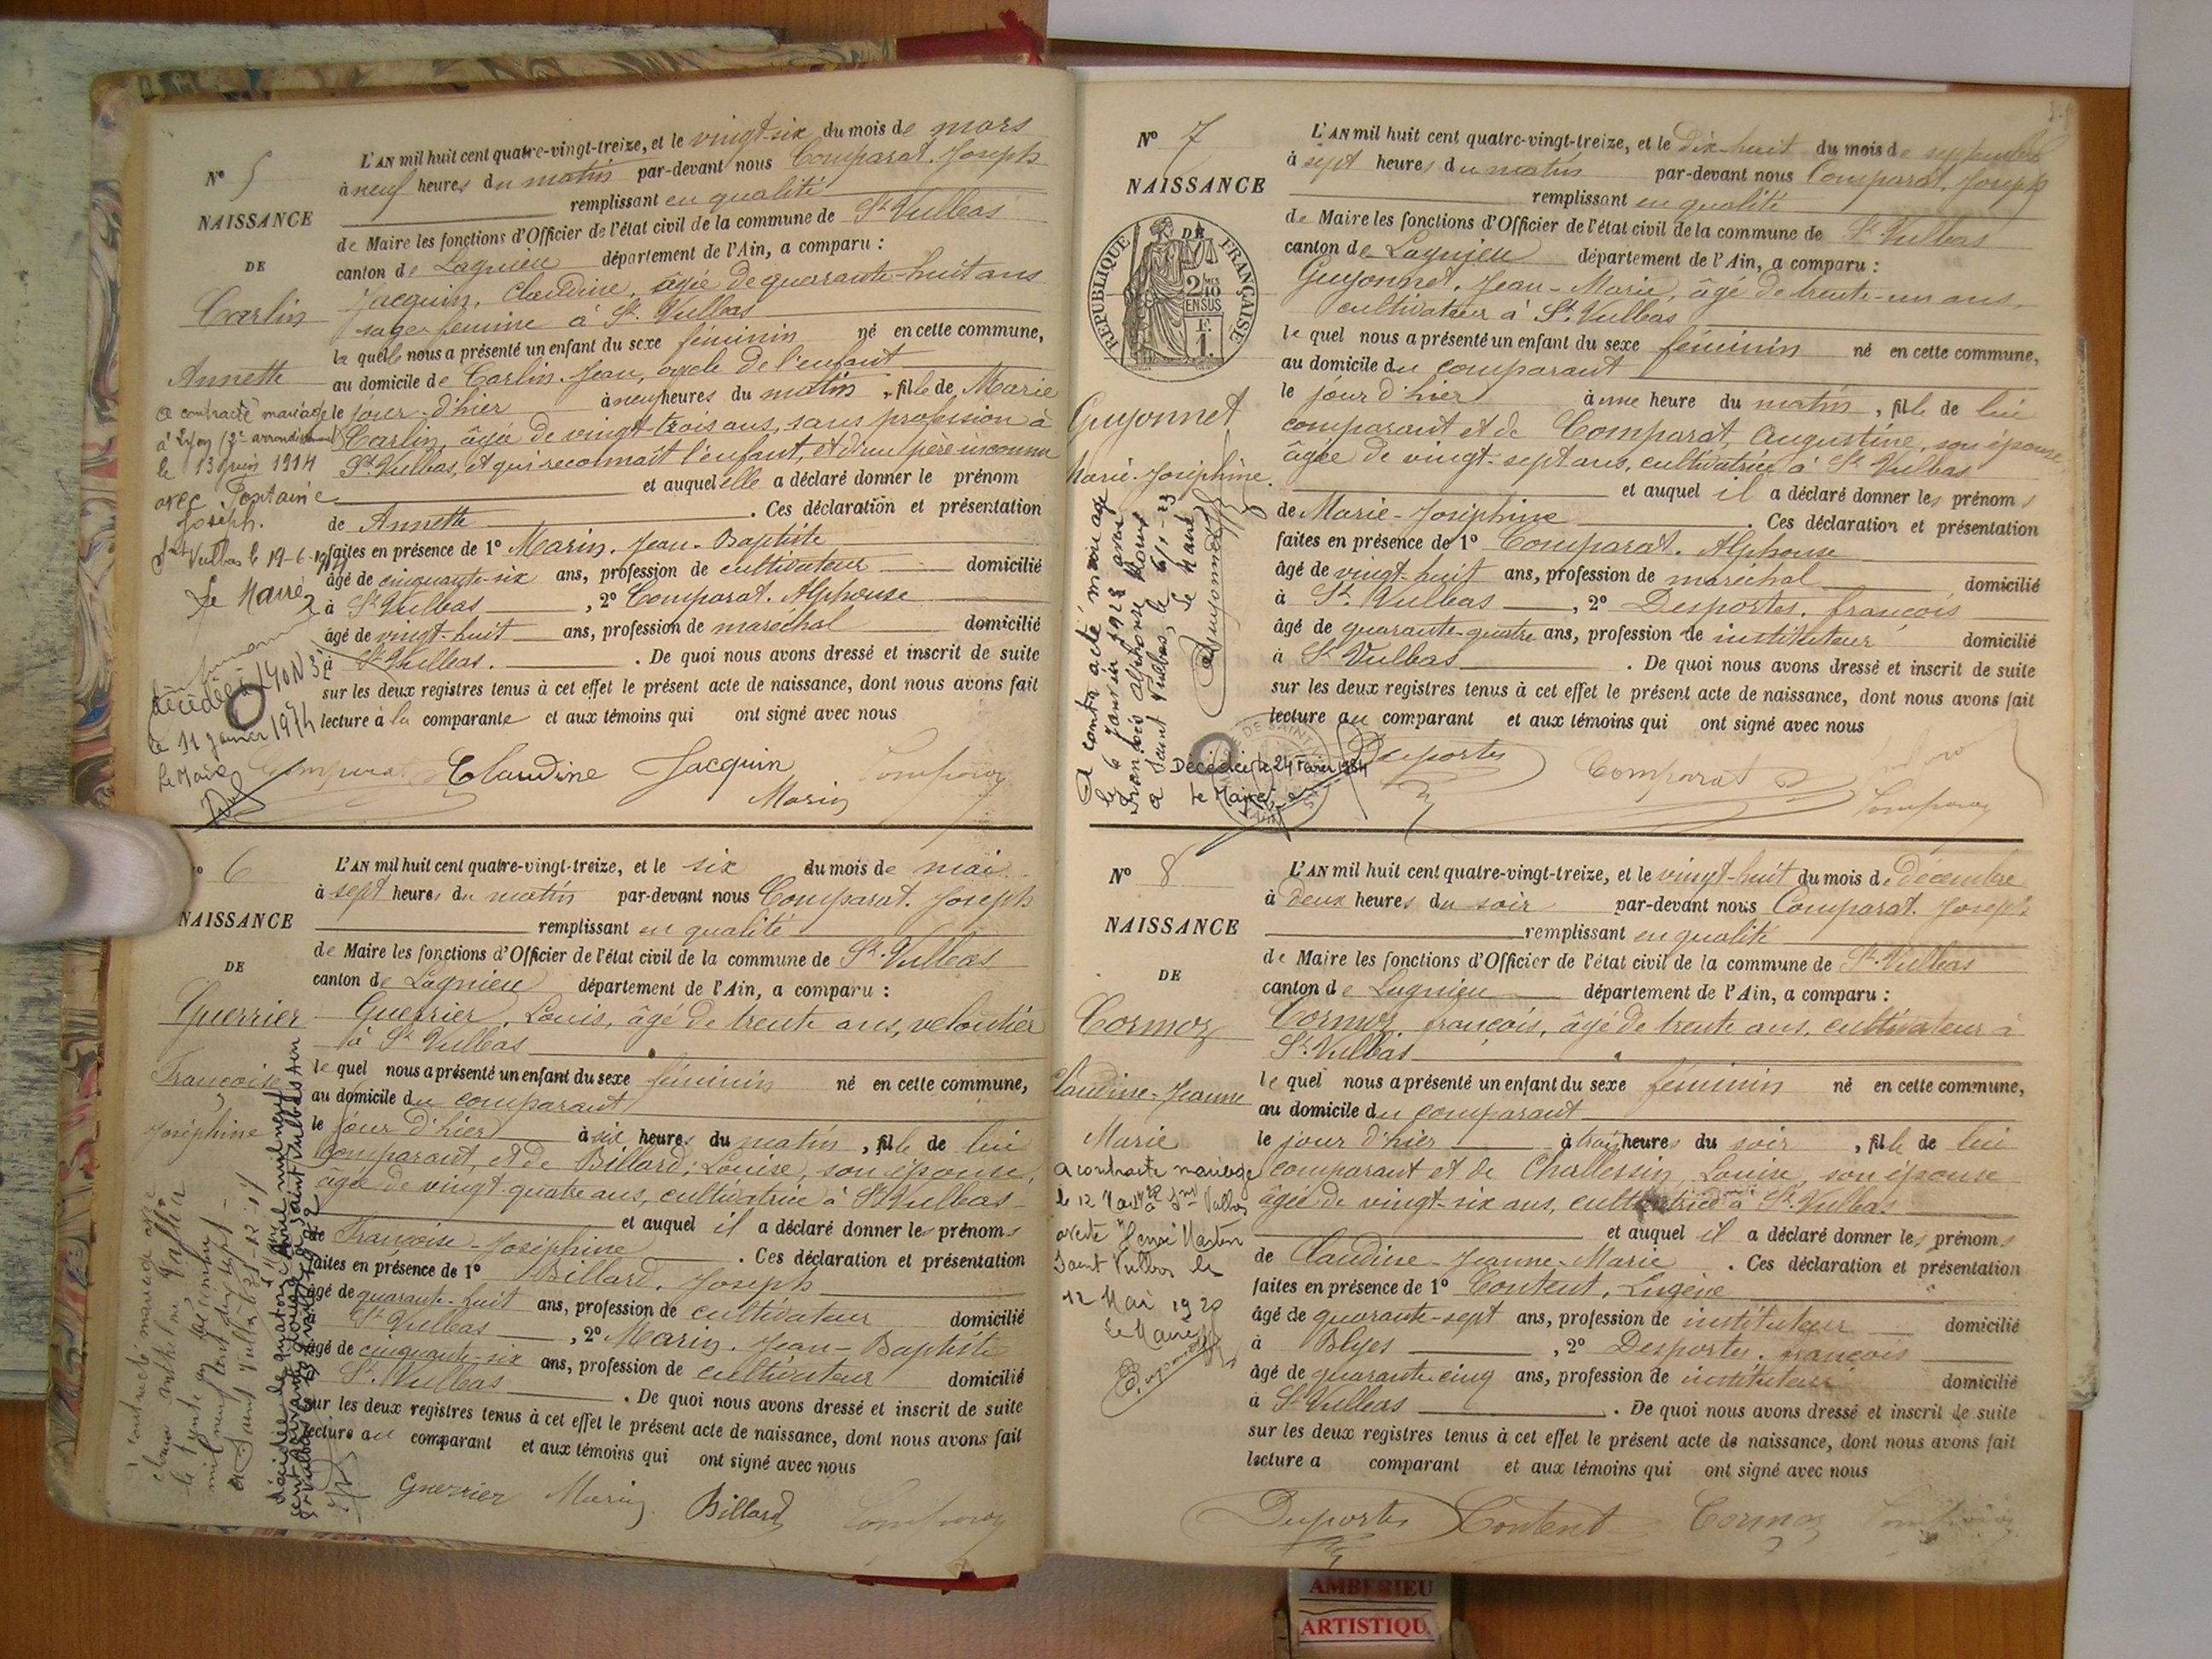 N° 5
NAISSANCE
DE
Carlin
Annette
a contracté mariage
à Lyon (3e arrondissement)
le 13 juin 1914
avec Fontaine
Joseph.
St Vulbas le 19-6-1914
Le Maire
décédée à LYON 3e
le 11 janvier 1974
Le Maire
L'AN mil huit cent quatre-vingt-treize, et le vingt-six du mois de mars
à neuf heures du matin par-devant nous Comparat, Joseph
remplissant en qualité
de Maire les fonctions d'Officier de l'état civil de la commune de St Vulbas
canton de Lagnieu département de l'Ain, a comparu :
Jacquin, Claudine, âgée de quarante-huit ans
sage-femme à St Vulbas
laquelle nous a présenté un enfant du sexe féminin né en cette commune,
au domicile de Carlin, Jean, oncle de l'enfant
le jour d'hier à neuf heures du matin, fille de Marie
Carlin, âgée de vingt-trois ans, sans profession à
St Vulbas, et qui reconnaît l'enfant, et d'un père inconnu
et auquel elle a déclaré donner le prénom
de Annette. Ces déclaration et présentation
faites en présence de 1° Marin, Jean-Baptiste
âgé de cinquante-six ans, profession de cultivateur domicilié
à St Vulbas, 2° Comparat, Alphonse
âgé de vingt-huit ans, profession de maréchal domicilié
à St Vulbas. De quoi nous avons dressé et inscrit de suite
sur les deux registres tenus à cet effet le présent acte de naissance, dont nous avons fait
lecture à la comparante et aux témoins qui ont signé avec nous
Comparat Claudine Jacquin
Marin
N° 6
NAISSANCE
DE
Guerrier
Françoise
Joséphine
Contracté mariage avec
Vallier
le trente décembre
mil neuf cent dix sept
à Saint Vulbas 31-12-17
L'AN mil huit cent quatre-vingt-treize, et le six du mois de mai
à sept heures du matin par-devant nous Comparat, Joseph
remplissant en qualité
de Maire les fonctions d'Officier de l'état civil de la commune de St Vulbas
canton de Lagnieu département de l'Ain, a comparu :
Guerrier, Louis, âgé de trente ans, veloutier
à St Vulbas
lequel nous a présenté un enfant du sexe féminin né en cette commune,
au domicile du comparant
le jour d'hier à six heures du matin, fille de lui
comparant, et de Billard, Louise, son épouse,
âgée de vingt-quatre ans, cultivatrice à St Vulbas
et auquel il a déclaré donner les prénoms
de Françoise-Joséphine. Ces déclaration et présentation
faites en présence de 1° Billard, Joseph
âgé de quarante-huit ans, profession de cultivateur domicilié
St Vulbas, 2° Marin, Jean-Baptiste
âgé de cinquante-six ans, profession de cultivateur domicilié
St Vulbas. De quoi nous avons dressé et inscrit de suite
sur les deux registres tenus à cet effet le présent acte de naissance, dont nous avons fait
lecture au comparant et aux témoins qui ont signé avec nous
Guerrier Marin Billard
N° 7
NAISSANCE
REPUBLIQUE FRANÇAISE
Guyonnet
Marie-Joséphine
A contracté mariage
le 6 janvier 1923 avec
François Alphonse
à Saint Vulbas, le 6/1-23
Le Maire
Décédée le 24 Février 1984
Le Maire
L'AN mil huit cent quatre-vingt-treize, et le dix-huit du mois de septembre
à sept heures du matin par-devant nous Comparat, Joseph
remplissant en qualité
de Maire les fonctions d'Officier de l'état civil de la commune de St Vulbas
canton de Lagnieu département de l'Ain, a comparu :
Guyonnet, Jean-Marie, âgé de trente-un ans,
cultivateur à St Vulbas
lequel nous a présenté un enfant du sexe féminin né en cette commune,
au domicile du comparant
le jour d'hier à une heure du matin, fille de lui
comparant et de Comparat, Augustine, son épouse
âgée de vingt-sept ans, cultivatrice à St Vulbas
et auquel il a déclaré donner les prénoms
de Marie-Joséphine. Ces déclaration et présentation
faites en présence de 1° Comparat, Alphonse
âgé de vingt-huit ans, profession de maréchal domicilié
à St Vulbas, 2° Desportes, françois
âgé de quarante-quatre ans, profession de instituteur domicilié
à St Vulbas. De quoi nous avons dressé et inscrit de suite
sur les deux registres tenus à cet effet le présent acte de naissance, dont nous avons fait
lecture au comparant et aux témoins qui ont signé avec nous
Desportes Comparat
N° 8
NAISSANCE
DE
Cormoz
Claudine-Jeanne
Marie
a contracté mariage
le 12 Mai 1920 à St Vulbas
avec Henri Martin
Saint Vulbas le
12 Mai 1920
Le Maire
L'AN mil huit cent quatre-vingt-treize, et le vingt-huit du mois de décembre
à deux heures du soir par-devant nous Comparat, Joseph
remplissant en qualité
de Maire les fonctions d'Officier de l'état civil de la commune de St Vulbas
canton de Lagnieu département de l'Ain, a comparu :
Cormoz, françois, âgé de trente ans, cultivateur à
St Vulbas
lequel nous a présenté un enfant du sexe féminin né en cette commune,
au domicile du comparant
le jour d'hier à trois heures du soir, fille de lui
comparant et de Challessin, Louise, son épouse
âgée de vingt-six ans, cultivatrice à St Vulbas
et auquel il a déclaré donner les prénoms
de Claudine-Jeanne-Marie. Ces déclaration et présentation
faites en présence de 1° Content, Eugène
âgé de quarante-sept ans, profession de instituteur domicilié
à Blyes, 2° Desportes, françois
âgé de quarante-cinq ans, profession de instituteur domicilié
à St Vulbas. De quoi nous avons dressé et inscrit de suite
sur les deux registres tenus à cet effet le présent acte de naissance, dont nous avons fait
lecture a comparant et aux témoins qui ont signé avec nous
Desportes Content Cormoz
AMBERIEU
ARTISTIQU